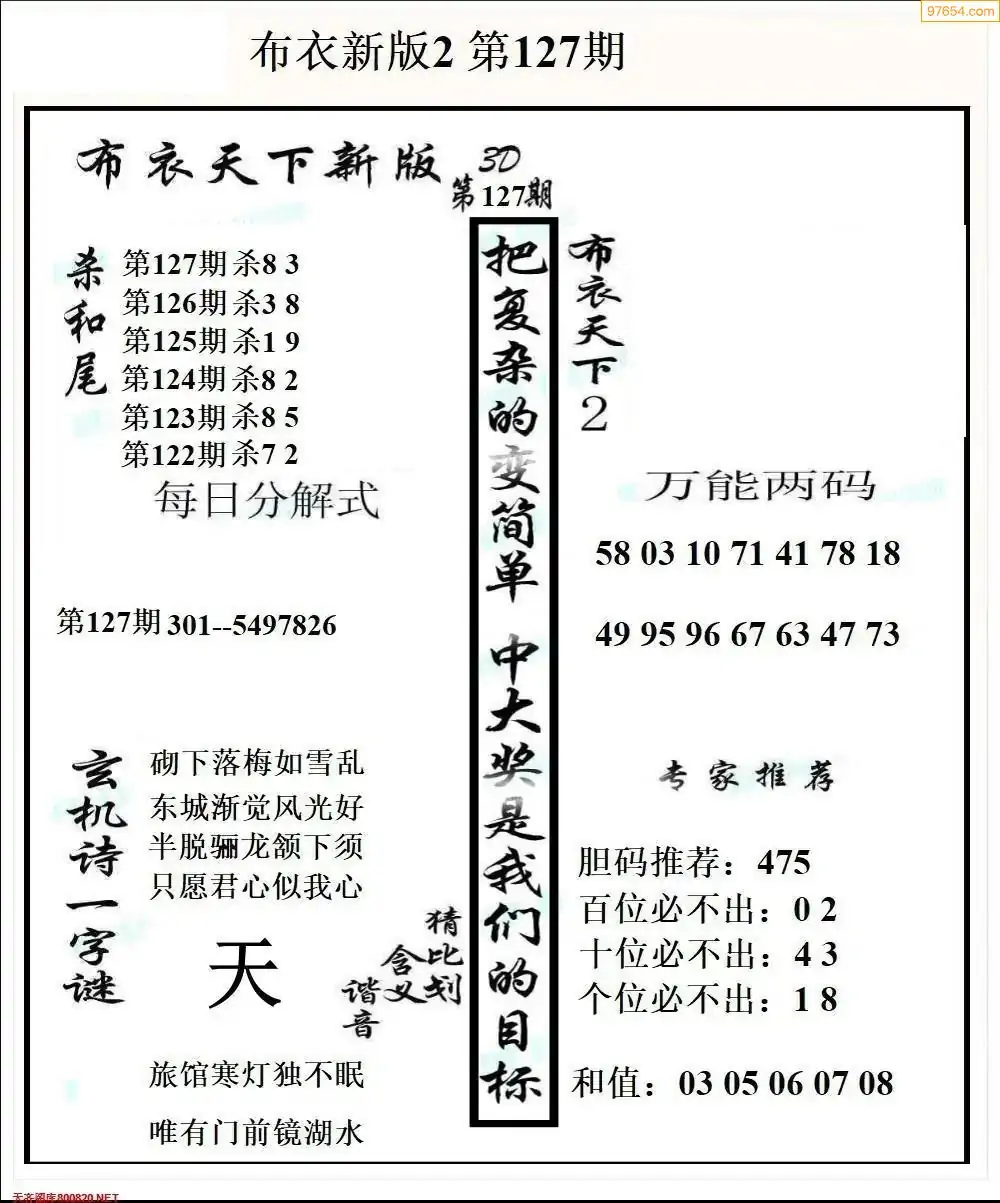 97654.com
布衣新版2 第127期
布衣天下新版
3D
第127期
杀和尾
第127期 杀8 3
第126期 杀3 8
第125期 杀1 9
第124期 杀8 2
第123期 杀8 5
第122期 杀7 2
每日分解式
第127期 301--5497826
玄机诗一字谜
砌下落梅如雪乱
东城渐觉风光好
半脱骊龙颔下须
只愿君心似我心
天
猜比划
含义
谐音
旅馆寒灯独不眠
唯有门前镜湖水
把复杂的变简单 中大奖是我们的目标
布衣天下2
万能两码
58 03 10 71 41 78 18
49 95 96 67 63 47 73
专家推荐
胆码推荐：475
百位必不出：0 2
十位必不出：4 3
个位必不出：1 8
和值：03 05 06 07 08
天齐图库800820.NET